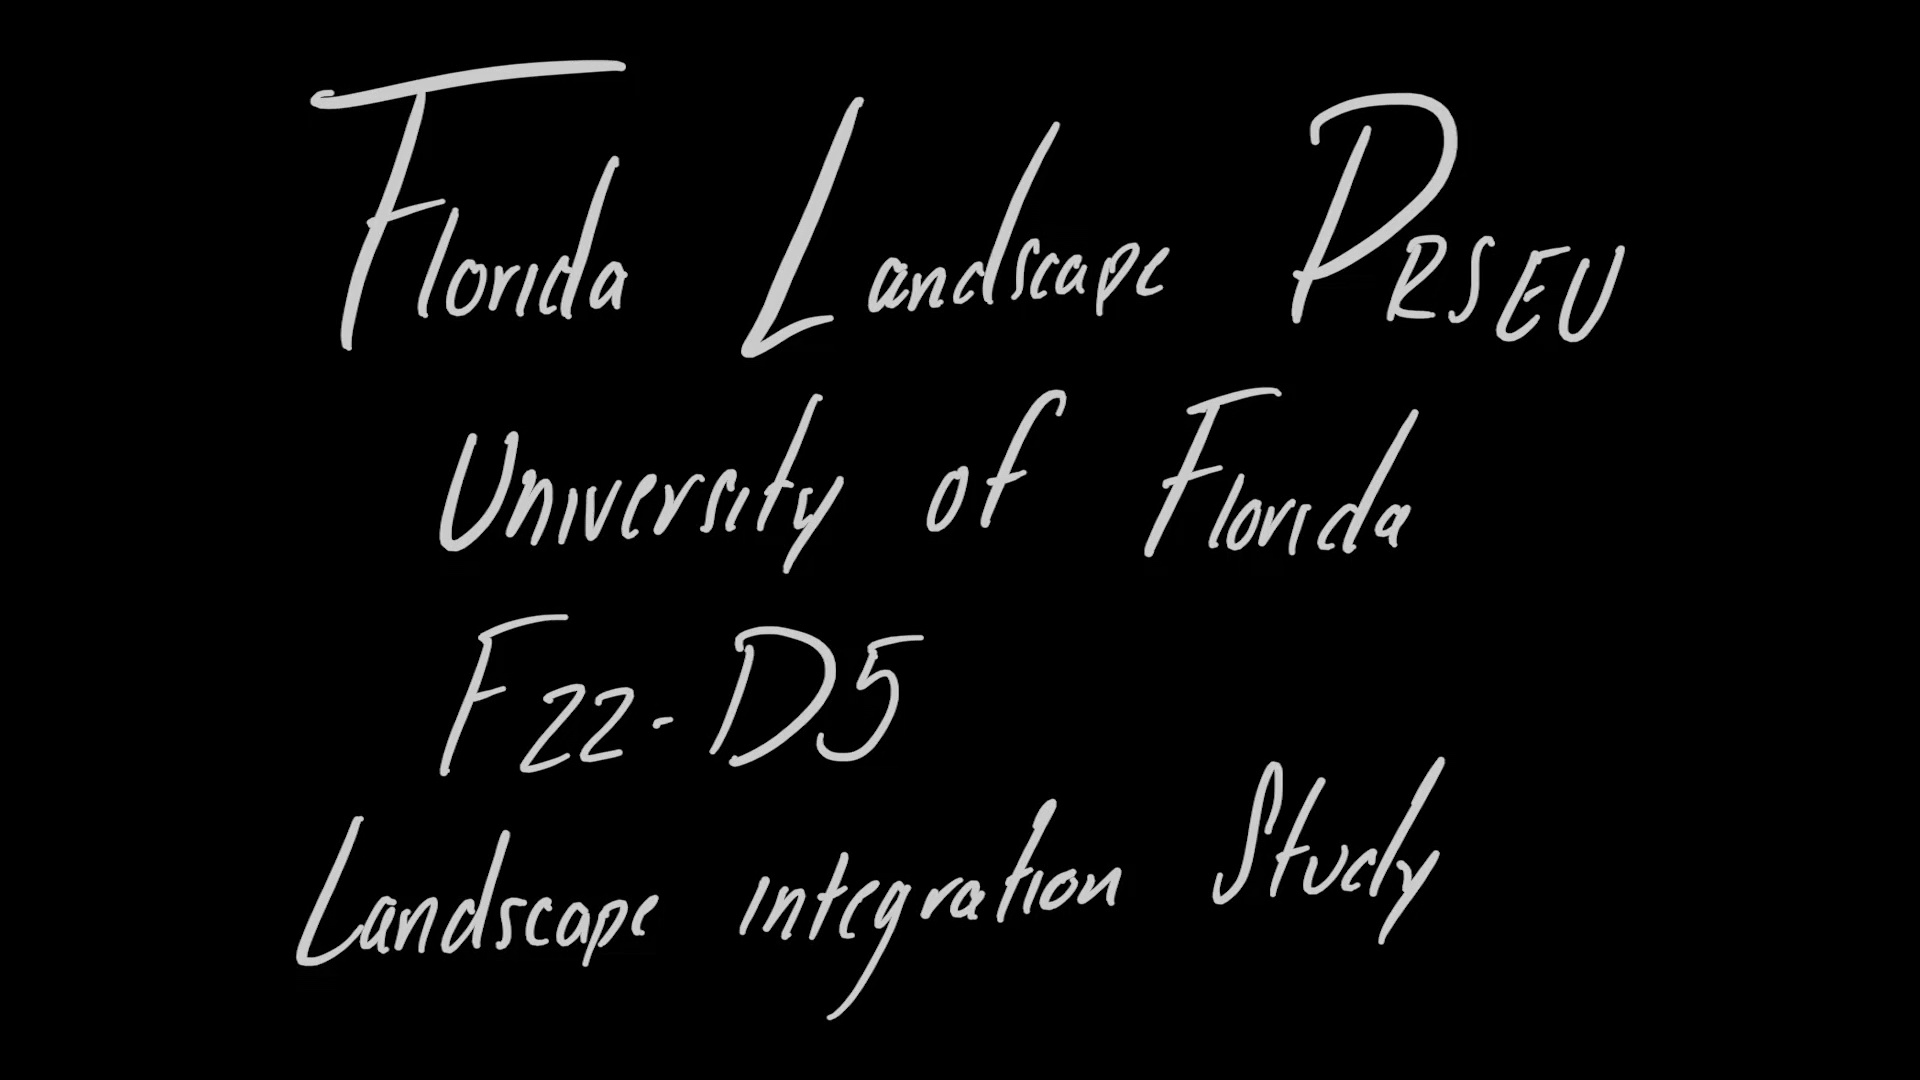 Florida Landscape PRSEU
University of Florida
F22-D5
Landscape integration Study